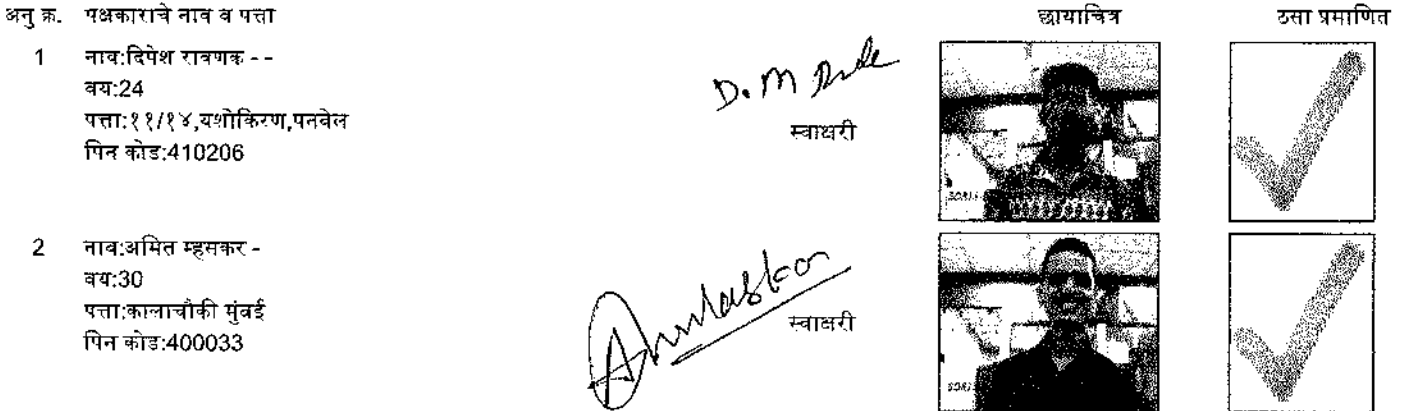 अनु क्र. पक्षकाराचे नाव व पत्ता छायाचित्र ठसा प्रमाणित
1 नाव:दिपेश रावणक - -
वय:24
पत्ता:११/१४,यशोकिरण,पनवेल
पिन कोड:410206
D. M
स्वाक्षरी
2 नाव:अमित म्हसकर -
वय:30
पत्ता:कालाचौकी मुंबई
पिन कोड:400033
स्वाक्षरी